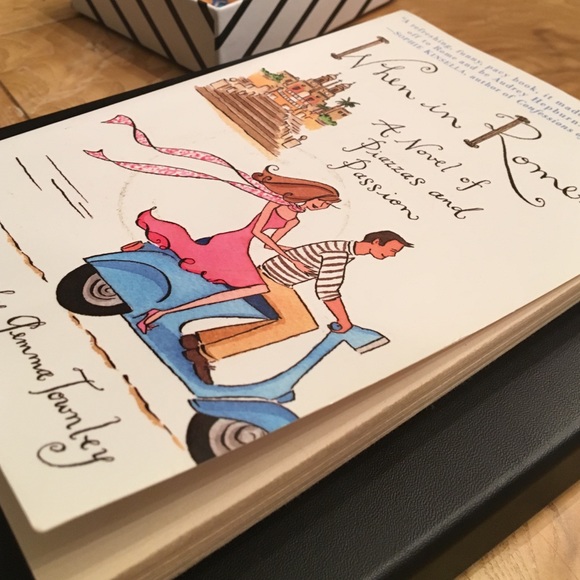 "A refreshing, funny, pacy book, it made
off to Rome and be Audrey Hepburn
—SOPHIE KINSELLA, author of Confessions of
When in Rome
A Novel of
Piazzas and
Passion
Gemma Townley